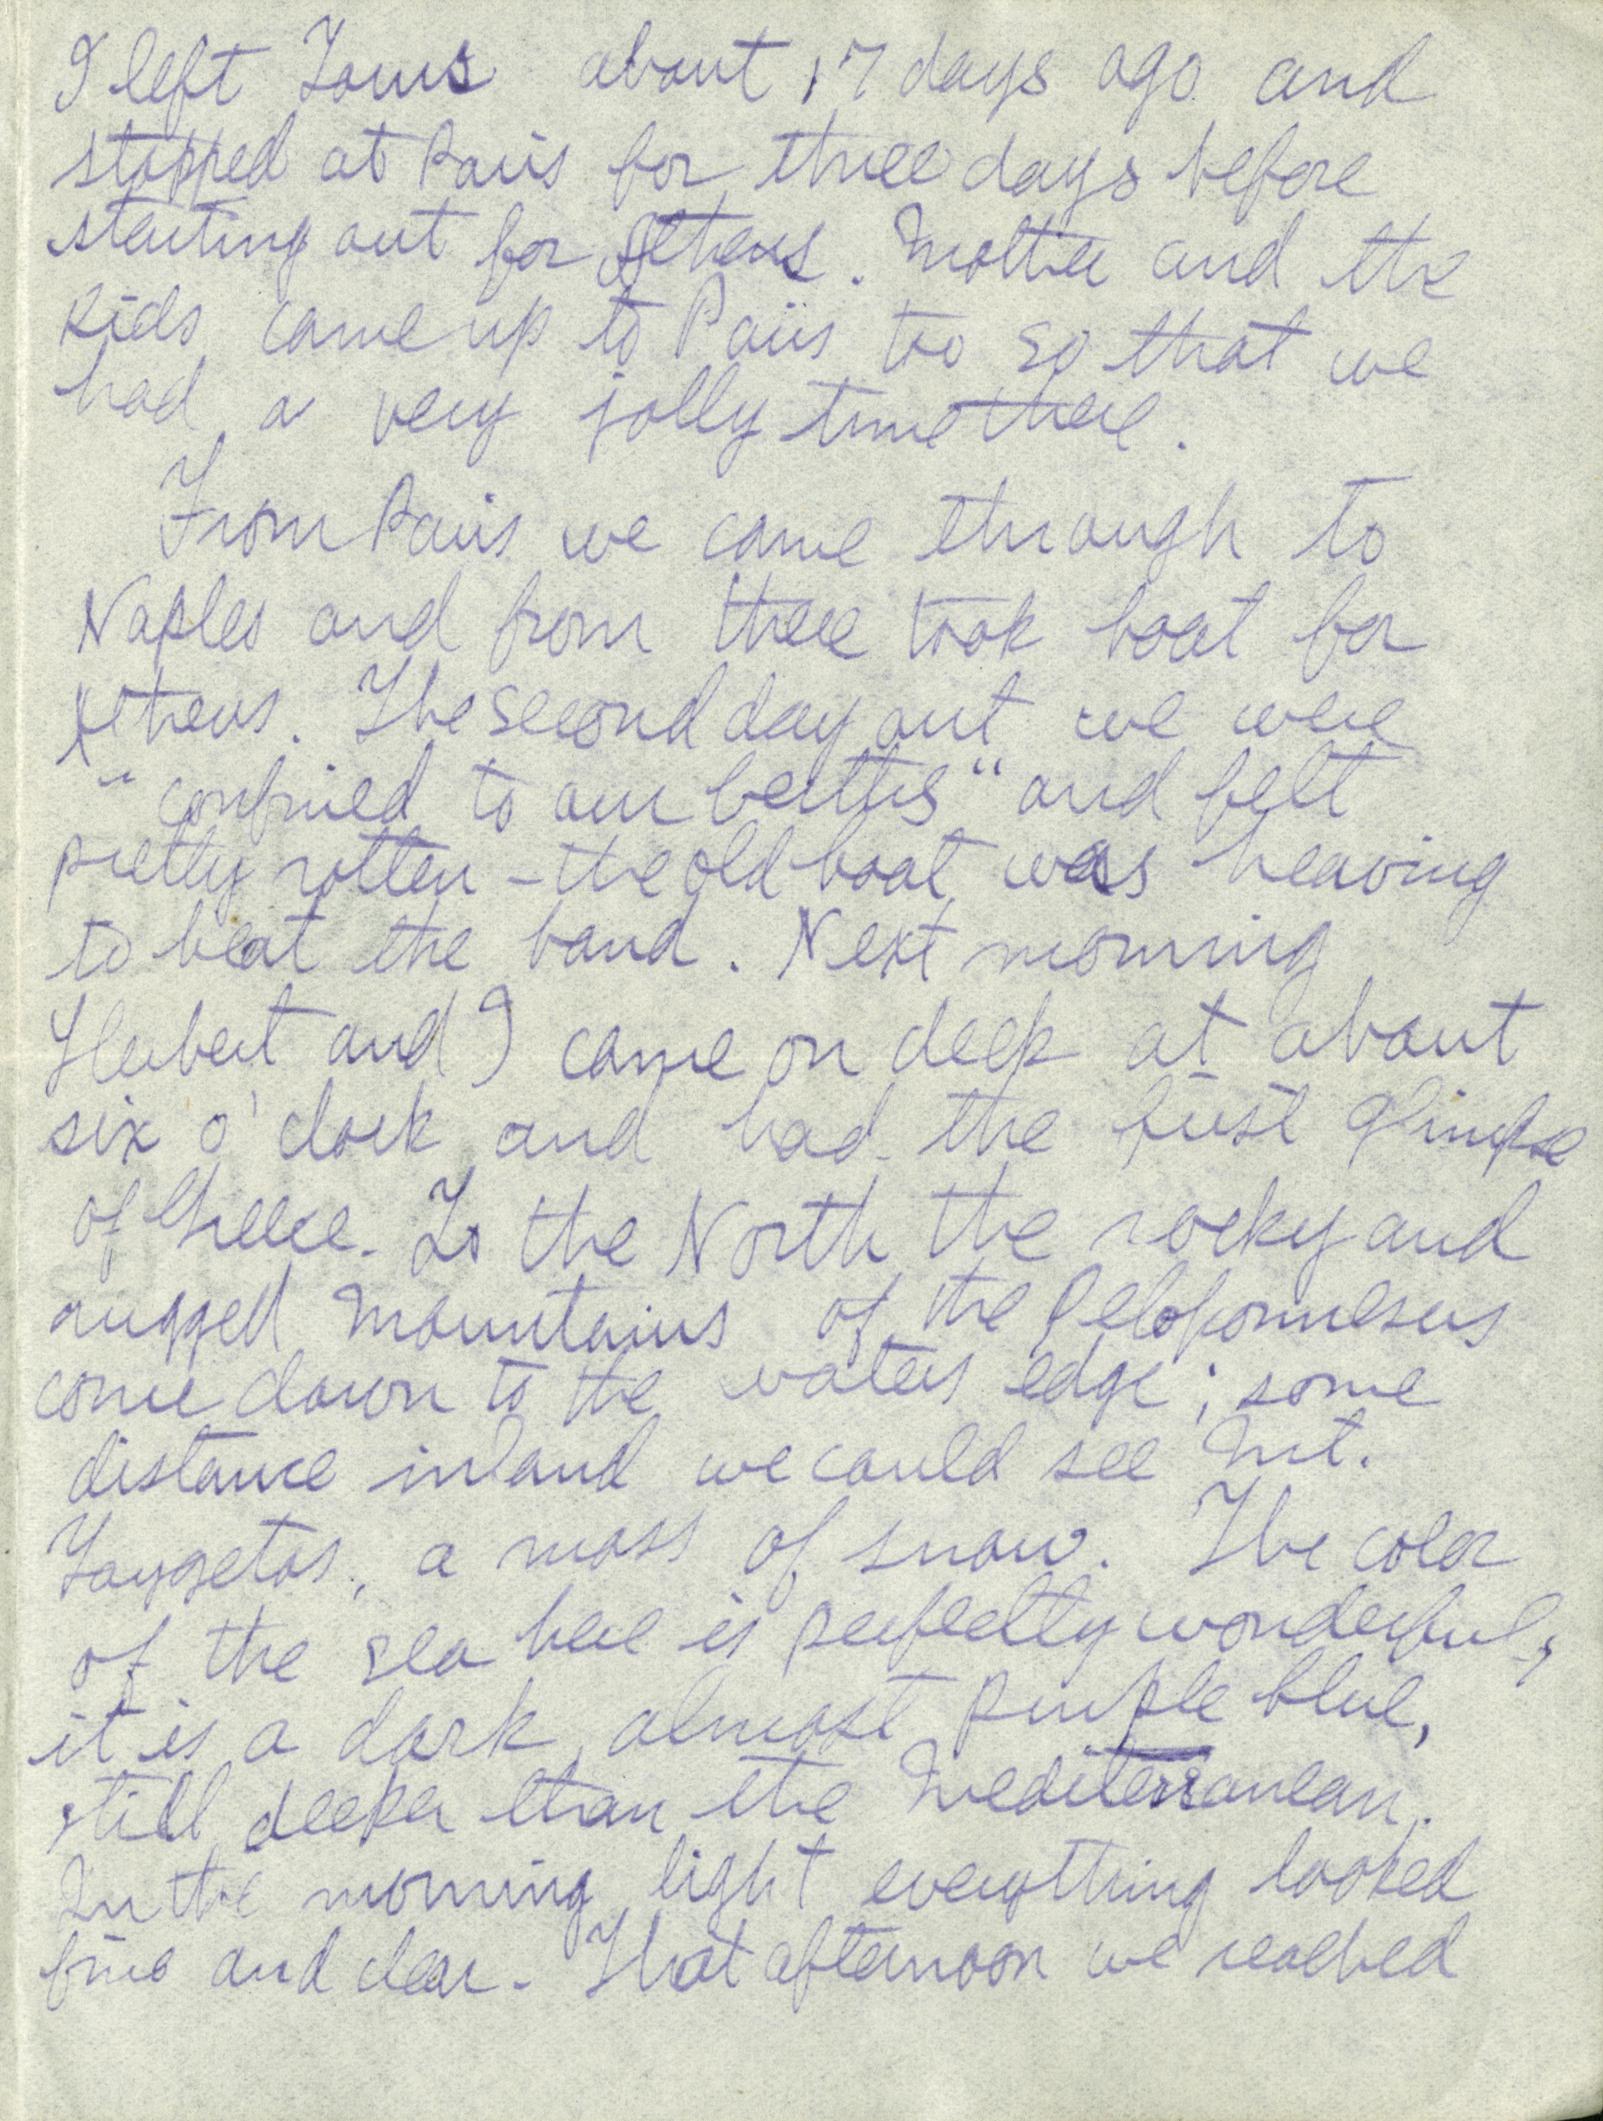 I left Tours about 17 days ago and
stopped at Paris for three days before
starting out for Athens. Mother and the
kids came up to Paris too so that we
had a very jolly time there.
From Paris we came through to
Naples and from there took boat for
Athens. The second day out we were
"confined to our berths" and felt
pretty rotten - the old boat was heaving
to beat the band. Next morning
Herbert and I came on deck at about
six o'clock and had the first glimpse
of Greece. To the North the rocky and
rugged mountains of the Peloponnesus
come down to the waters edge; some
distance inland we could see Mt.
Taygetos, a mass of snow. The color
of the sea here is perfectly wonderful,
it is a dark, almost purple blue,
still deeper than the Mediterranean.
In the morning light everything looked
fine and clear. That afternoon we reached